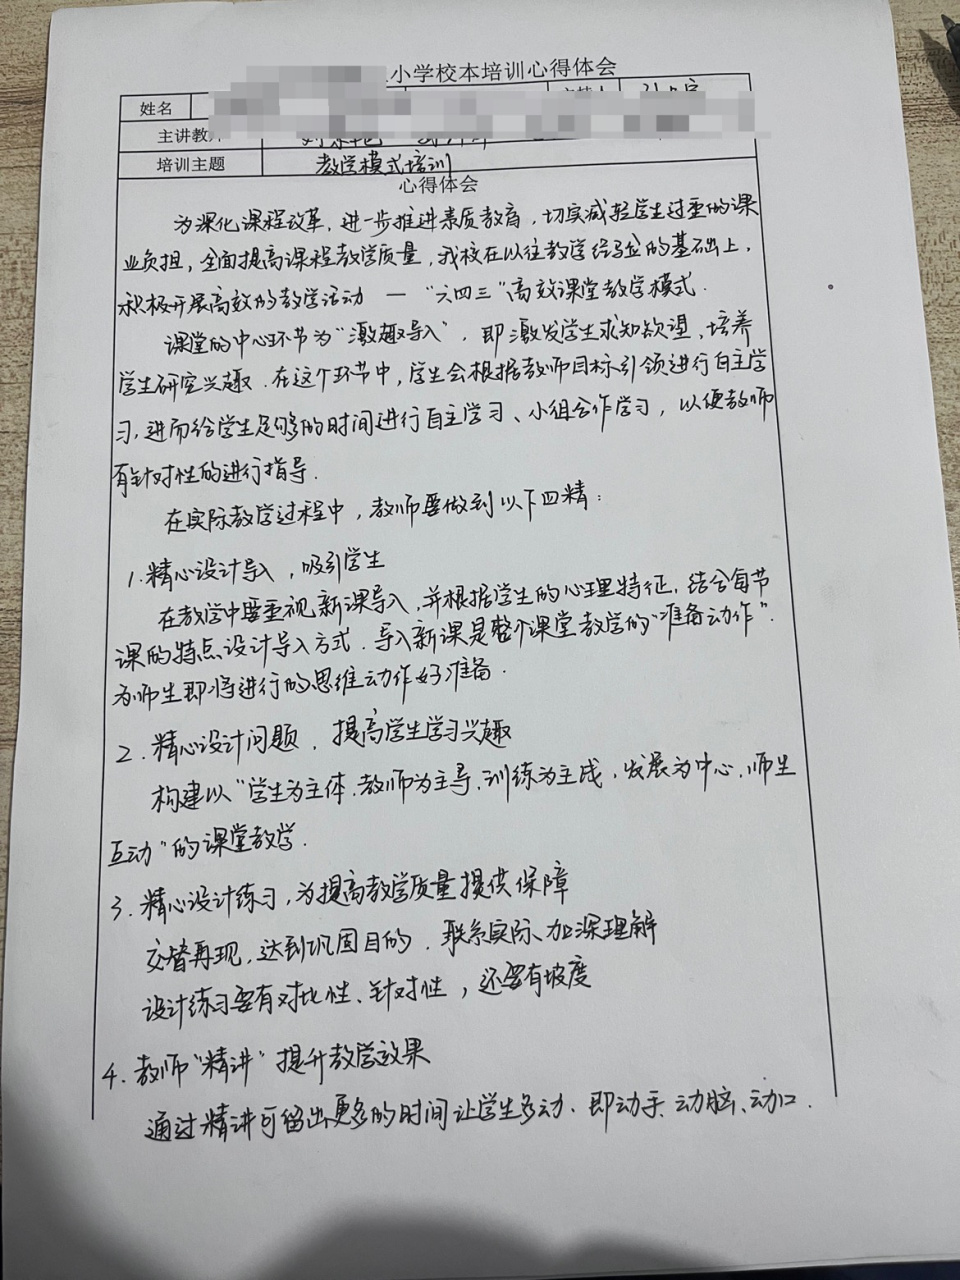 小学校本培训心得体会
姓名
主讲教师
培训主题 教学模式培训
心得体会
为深化课程改革，进一步推进素质教育，切实减轻学生过重的课
业负担，全面提高课程教学质量，我校在以往教学经验的基础上，
积极开展高效的教学活动 — “六四三”高效课堂教学模式.
课堂的中心环节为“激趣导入”，即激发学生求知欲望、培养
学生研究兴趣.在这个环节中，学生会根据教师目标引领进行自主学
习，进而给学生足够的时间进行自主学习、小组合作学习，以便教师
有针对性的进行指导.
在实际教学过程中，教师要做到以下四精：
1.精心设计导入，吸引学生
在教学中要重视新课导入，并根据学生的心理特征，结合每节
课的特点设计导入方式.导入新课是整个课堂教学的“准备动作”.
为师生即将进行的思维动作好准备.
2.精心设计问题，提高学生学习兴趣
构建以“学生为主体、教师为主导、训练为主成，发展为中心、师生
互动”的课堂教学.
3.精心设计练习，为提高教学质量提供保障
交替再现，达到巩固目的，联系实际、加深理解
设计练习要有对比性、针对性，还要有坡度
4.教师“精讲”提升教学效果
通过精讲可留出更多的时间让学生多动、即动手、动脑、动口.